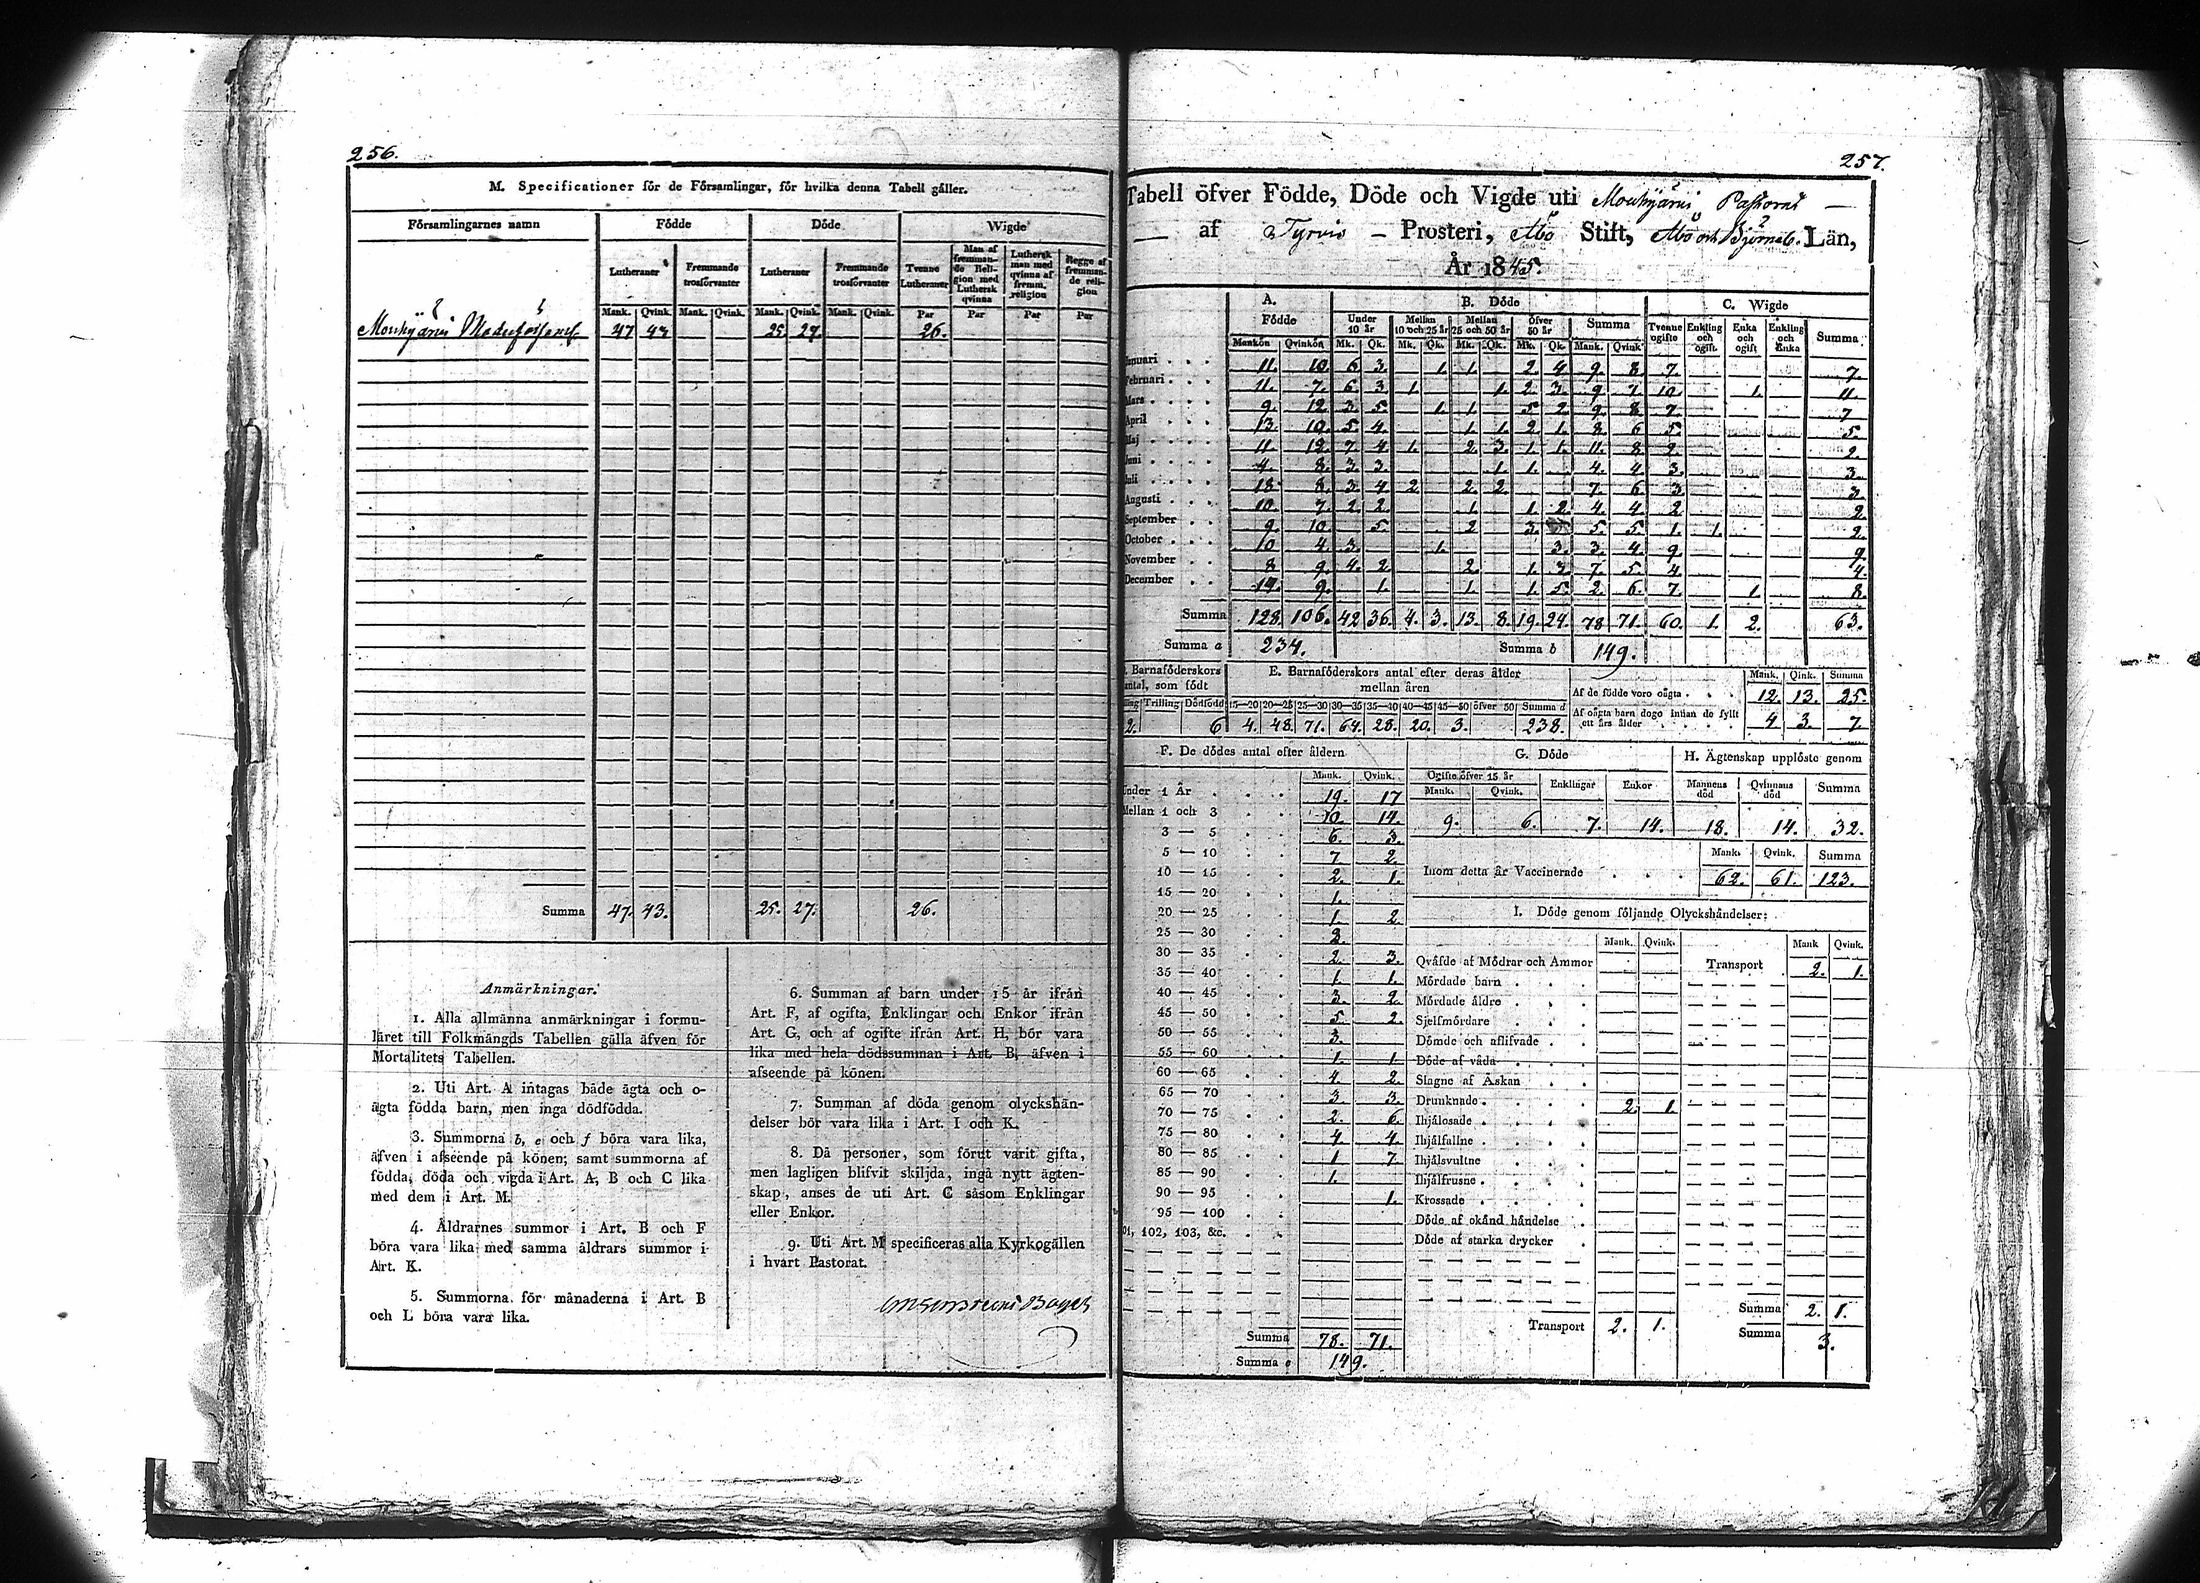 256.
M. Specificationer för de Församlingar, för hvilka denna Tabell gäller.
Församlingarnes namn Födde Döde Wigde
Lutheraner Fremmande trosförvanter Lutheraner Fremmande trosförvanter Tvenne Lutheraner Man af fremmande Religion med Luthersk qvinna Luthersk man med qvinna af fremm. religion Begge af fremmande religion
Mank. Qvink. Mank. Qvink. Mank. Qvink. Mank. Qvink. Par Par Par Par
Mouhijärvi 47 43 25. 27. 26.
Summa 47. 43. 25. 27. 26.
Anmärkningar.
1. Alla allmänna anmärkningar i formu-
läret till Folkmängds Tabellen gälla äfven för
Mortalitets Tabellen.
2. Uti Art. A intagas både ägta och o-
ägta födda barn, men inga dödfödda.
3. Summorna b, e och f böra vara lika,
äfven i afseende på könen; samt summorna af
födda, döda och vigda i Art. A, B och C lika
med dem i Art. M.
4. Åldrarnes summor i Art. B och F
böra vara lika med samma åldrars summor i
Art. K.
5. Summorna för månaderna i Art. B
och L böra vara lika.
6. Summan af barn under 15 år ifrån
Art. F, af ogifta, Enklingar och Enkor ifrån
Art. G, och af ogifte ifrån Art. H, bör vara
lika med hela dödssumman i Art. B, äfven i
afseende på könen.
7. Summan af döda genom olyckshän-
delser bör vara lika i Art. I och K.
8. Då personer, som förut varit gifta,
men lagligen blifvit skiljda, ingå nytt ägten-
skap, anses de uti Art. C såsom Enklingar
eller Enkor.
9. Uti Art. M specificeras alla Kyrkogällen
i hvart Pastorat.
257.
Tabell öfver Födde, Döde och Vigde uti Mouhijärvi Pastorat
af Tyrvis Prosteri, Åbo Stift, Åbo och Björneb. Län,
År 1845.
A. Födde B. Döde C. Wigde
Under 10 år Mellan 10 och 25 år Mellan 25 och 50 år Öfver 50 år Summa Tvenne ogifte Enkling och ogift Enka och ogift Enkling och Enka Summa
Mankön Qvinkön Mk. Qk. Mk. Qk. Mk. Qk. Mk. Qk. Mank. Qvink.
Januari 11. 10 6 3. 1. 1. 2 4 9. 8. 7. 7.
Februari 11. 7. 6 3 1. 1. 2 3. 9 7 10. 1. 11.
Mars 9. 12. 3. 5. 1. 1. 5 2 9. 8. 7. 7
April 13. 10. 5 4. 1. 1. 2 1. 8. 6 5. 5.
Maj 11. 12. 7 4 1. 2 3. 1. 1. 11. 8 2. 2.
Juni 8. 3 3. 1. 1. 4. 4 3. 3.
Juli 18. 8. 3 4 2. 2. 2. 7. 6. 3. 3.
Augusti 10. 7. 2 2. 1. 1. 2. 4. 4 2 2.
September 9. 10. 5. 2 3. 5. 5. 1. 1. 2.
October 10 4. 3. 1. 3. 3. 4. 9. 9.
November 8 9. 4. 2. 2. 1. 3. 7. 5. 4. 4.
December 9. 1. 1. 1. 5. 2. 6. 7. 1. 8.
Summa 128. 106. 42 36. 4. 3. 13. 8. 19. 24. 78 71. 60. 1. 2. 63.
Summa a 234. Summa b 149.
Barnaföderskors antal, som födt
Tvilling Trilling Dödfödd
2. 6
E. Barnaföderskors antal efter deras ålder
mellan åren
15—20 20—25 25—30 30—35 35—40 40—45 45—50 öfver 50 Summa d
4. 48. 71. 64. 28. 20. 3. 238.
Mank. Qink. Summa
Af de födde voro oägta 12. 13. 25.
Af oägta barn dogo innan de fyllt
ett års ålder 4 3. 7.
F. De dödes antal efter åldern
Mank. Qvink.
Under 1 År 19. 17
Mellan 1 och 3 10. 14.
3 — 5 6. 3.
5 — 10 7 2.
10 — 15 2. 1.
15 — 20 1.
20 — 25 1. 2.
25 — 30
30 — 35 2. 3.
35 — 40 1. 1.
40 — 45 3. 2.
45 — 50 5. 2.
50 — 55 3.
55 — 60 1. 1.
60 — 65 4. 2.
65 — 70 3. 3.
70 — 75 2. 6.
75 — 80 4. 4.
80 — 85 1 7.
85 — 90 1.
90 — 95 1.
95 — 100
101, 102, 103, &c.
Summa 78. 71.
Summa e 149.
G. Döde
Ogifte öfver 15 år Enklingar Enkor
Mank. Qvink.
9. 6. 7. 14.
H. Ägtenskap upplöste genom
Mannens död Qvinnans död Summa
18. 14. 32.
Mank. Qvink. Summa
Inom detta år Vaccinerade 62. 61. 123.
I. Döde genom följande Olyckshändelser:
Mank. Qvink. Mank Qvink.
Qväfde af Mödrar och Ammor Transport 2. 1.
Mördade barn
Mördade äldre
Sjelfmördare
Dömde och aflifvade
Döde af våda
Slagne af Åskan
Drunknade 2. 1.
Ihjälosade
Ihjälfallne
Ihjälsvultne
Ihjälfrusne
Krossade
Döde af okänd händelse
Döde af starka drycker
Transport 2. 1.
Summa 2. 1.
Summa 3.